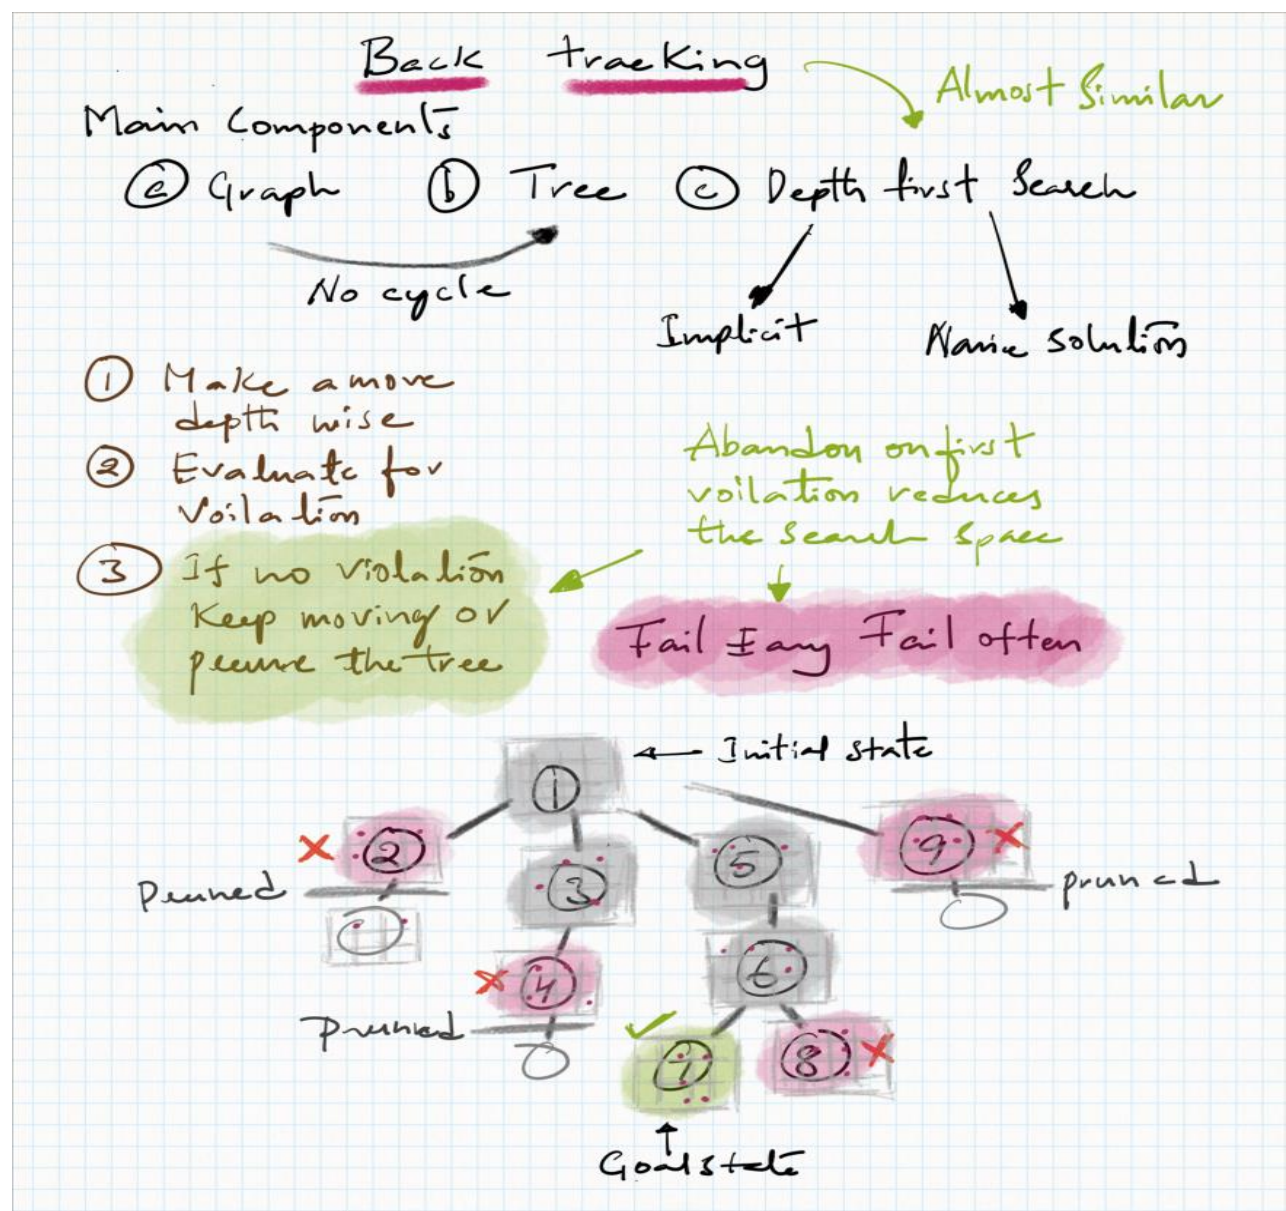 Back tracking
Almost Similar
Main Components
ⓐ Graph ⓑ Tree ⓒ Depth first Search
No cycle
Implicit
Naive Solution
① Make a move
depth wise
② Evaluate for
Voilation
③ If no violation
Keep moving or
the tree
Abandon on first
voilation reduces
the Search Space
Fail Fail often
Initial State
①
②
③
⑤
⑨
Pruned
pruned
④
⑥
Pruned
⑦
⑧
Goal State